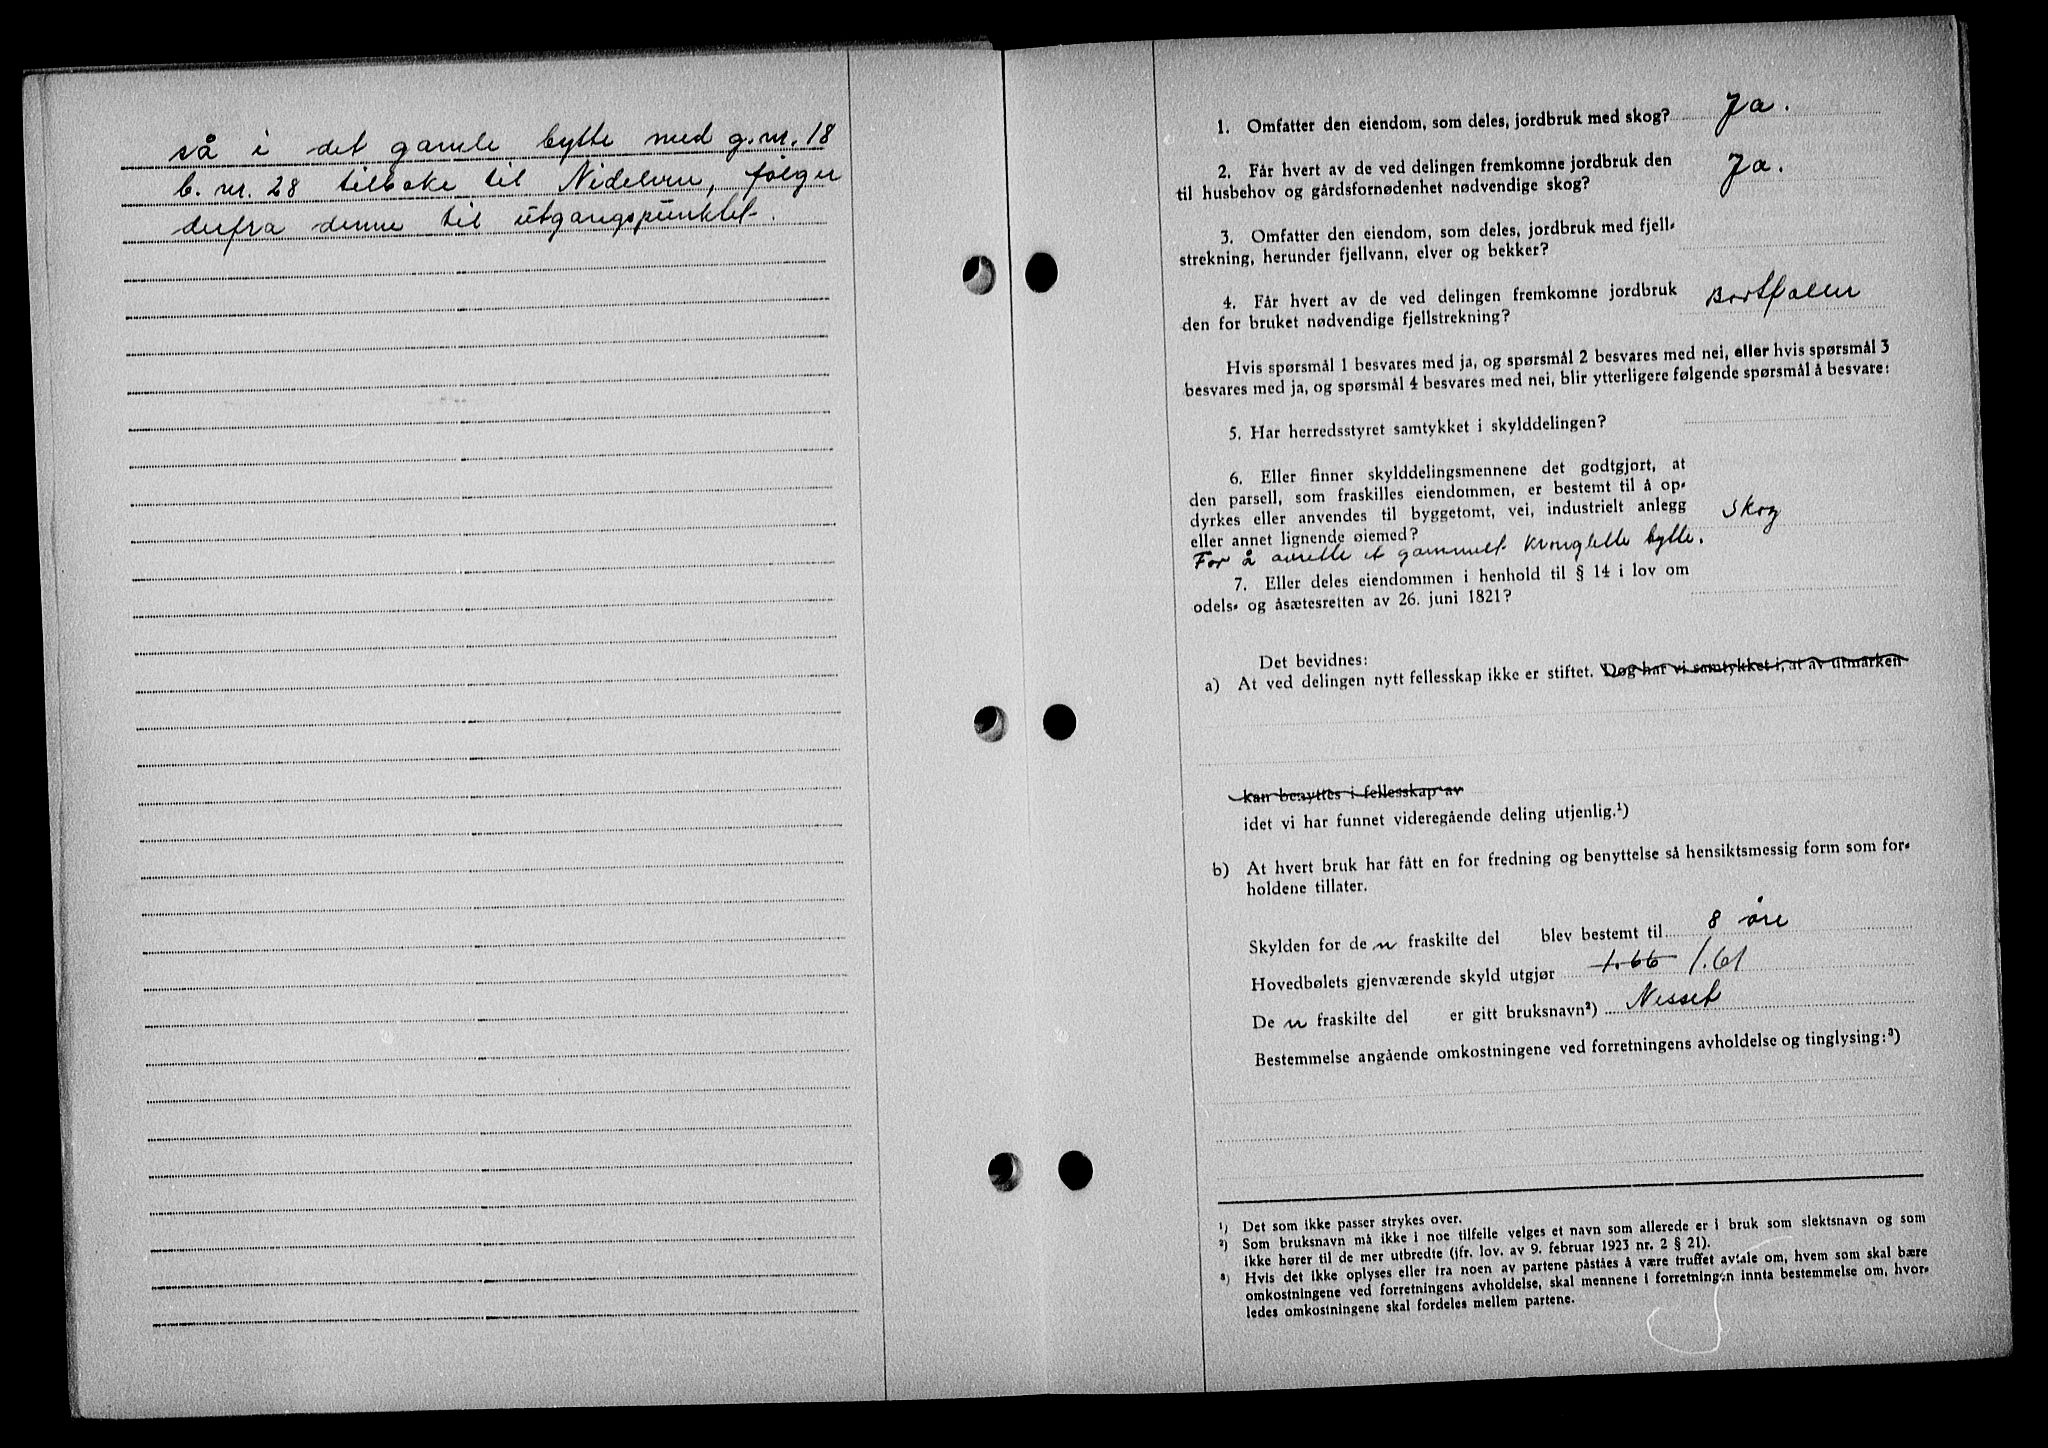 så i det gamle bytte med g.nr. 18
b. nr. 28 tilbake til Nidelven, følger
derfra denne til utgangspunktet.
1. Omfatter den eiendom, som deles, jordbruk med skog? Ja.
2. Får hvert av de ved delingen fremkomne jordbruk den
til husbehov og gårdsfornødenhet nødvendige skog? Ja.
3. Omfatter den eiendom, som deles, jordbruk med fjell-
strekning, herunder fjellvann, elver og bekker?
4. Får hvert av de ved delingen fremkomne jordbruk
den for bruket nødvendige fjellstrekning? Bortfaller
Hvis spørsmål 1 besvares med ja, og spørsmål 2 besvares med nei, eller hvis spørsmål 3
besvares med ja, og spørsmål 4 besvares med nei, blir ytterligere følgende spørsmål å besvare:
5. Har herredsstyret samtykket i skylddelingen?
6. Eller finner skylddelingsmennene det godtgjort, at
den parsell, som fraskilles eiendommen, er bestemt til å op-
dyrkes eller anvendes til byggetomt, vei, industrielt anlegg Skog
eller annet lignende øiemed?
For å avrette et gammelt kronglette bytte.
7. Eller deles eiendommen i henhold til § 14 i lov om
odels- og åsætesretten av 26. juni 1821?
Det bevidnes:
a) At ved delingen nytt fellesskap ikke er stiftet. Dog har vi samtykket i, at av utmarken
kan benyttes i fellesskap av
idet vi har funnet videregående deling utjenlig.¹)
b) At hvert bruk har fått en for fredning og benyttelse så hensiktsmessig form som for-
holdene tillater.
Skylden for den fraskilte del blev bestemt til 8 øre
Hovedbølets gjenværende skyld utgjør 1.66 1.61
Den fraskilte del er gitt bruksnavn²) Nesset
Bestemmelse angående omkostningene ved forretningens avholdelse og tinglysing:³)
¹) Det som ikke passer strykes over.
²) Som bruksnavn må ikke i noe tilfelle velges et navn som allerede er i bruk som slektsnavn og som
ikke hører til de mer utbredte (jfr. lov. av 9. februar 1923 nr. 2 § 21).
³) Hvis det ikke oplyses eller fra noen av partene påståes å være truffet avtale om, hvem som skal bære
omkostningene ved forretningens avholdelse, skal mennene i forretningen innta bestemmelse om, hvor-
ledes omkostningene skal fordeles mellem partene.